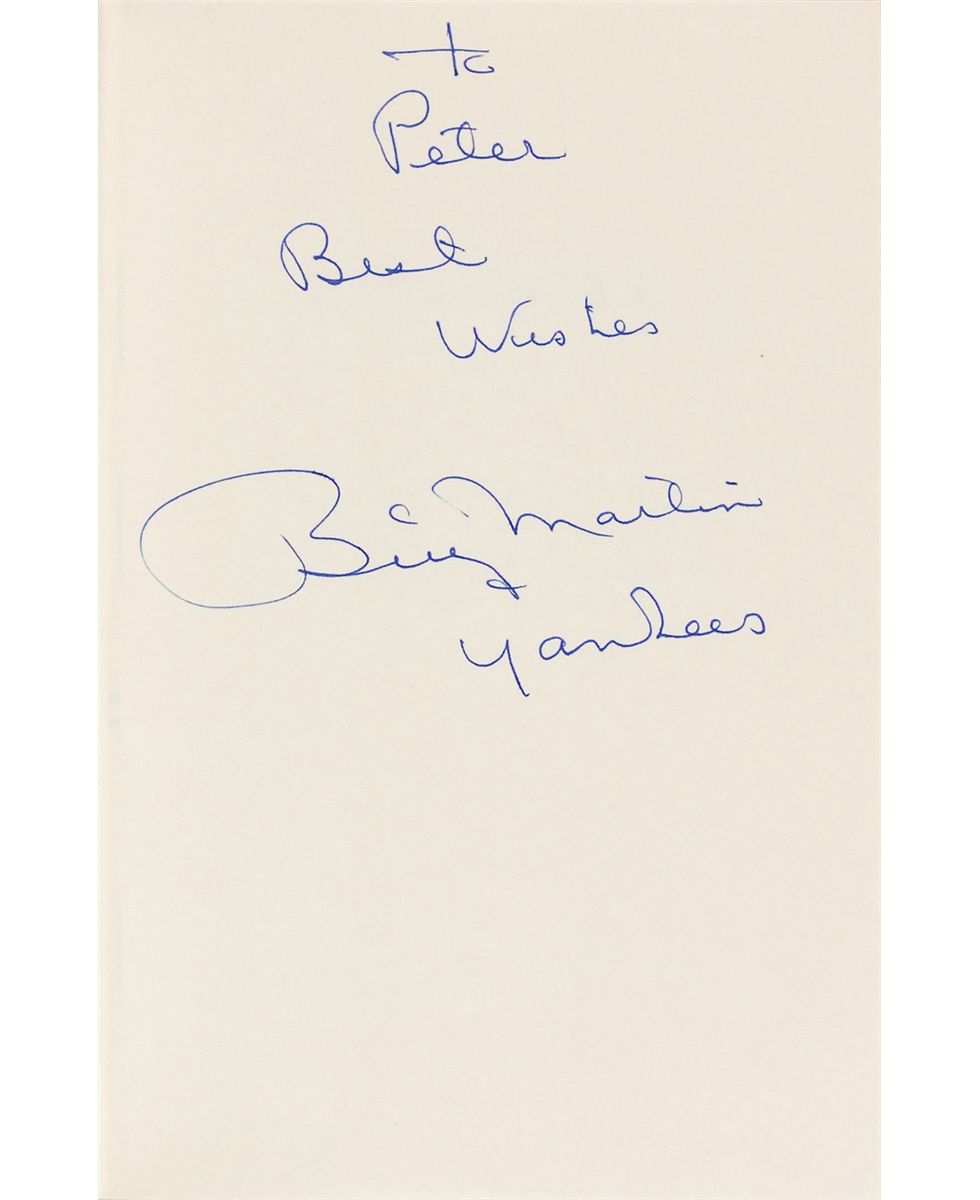 to
Peter
Best
Wishes
Billy Martin
Yankees